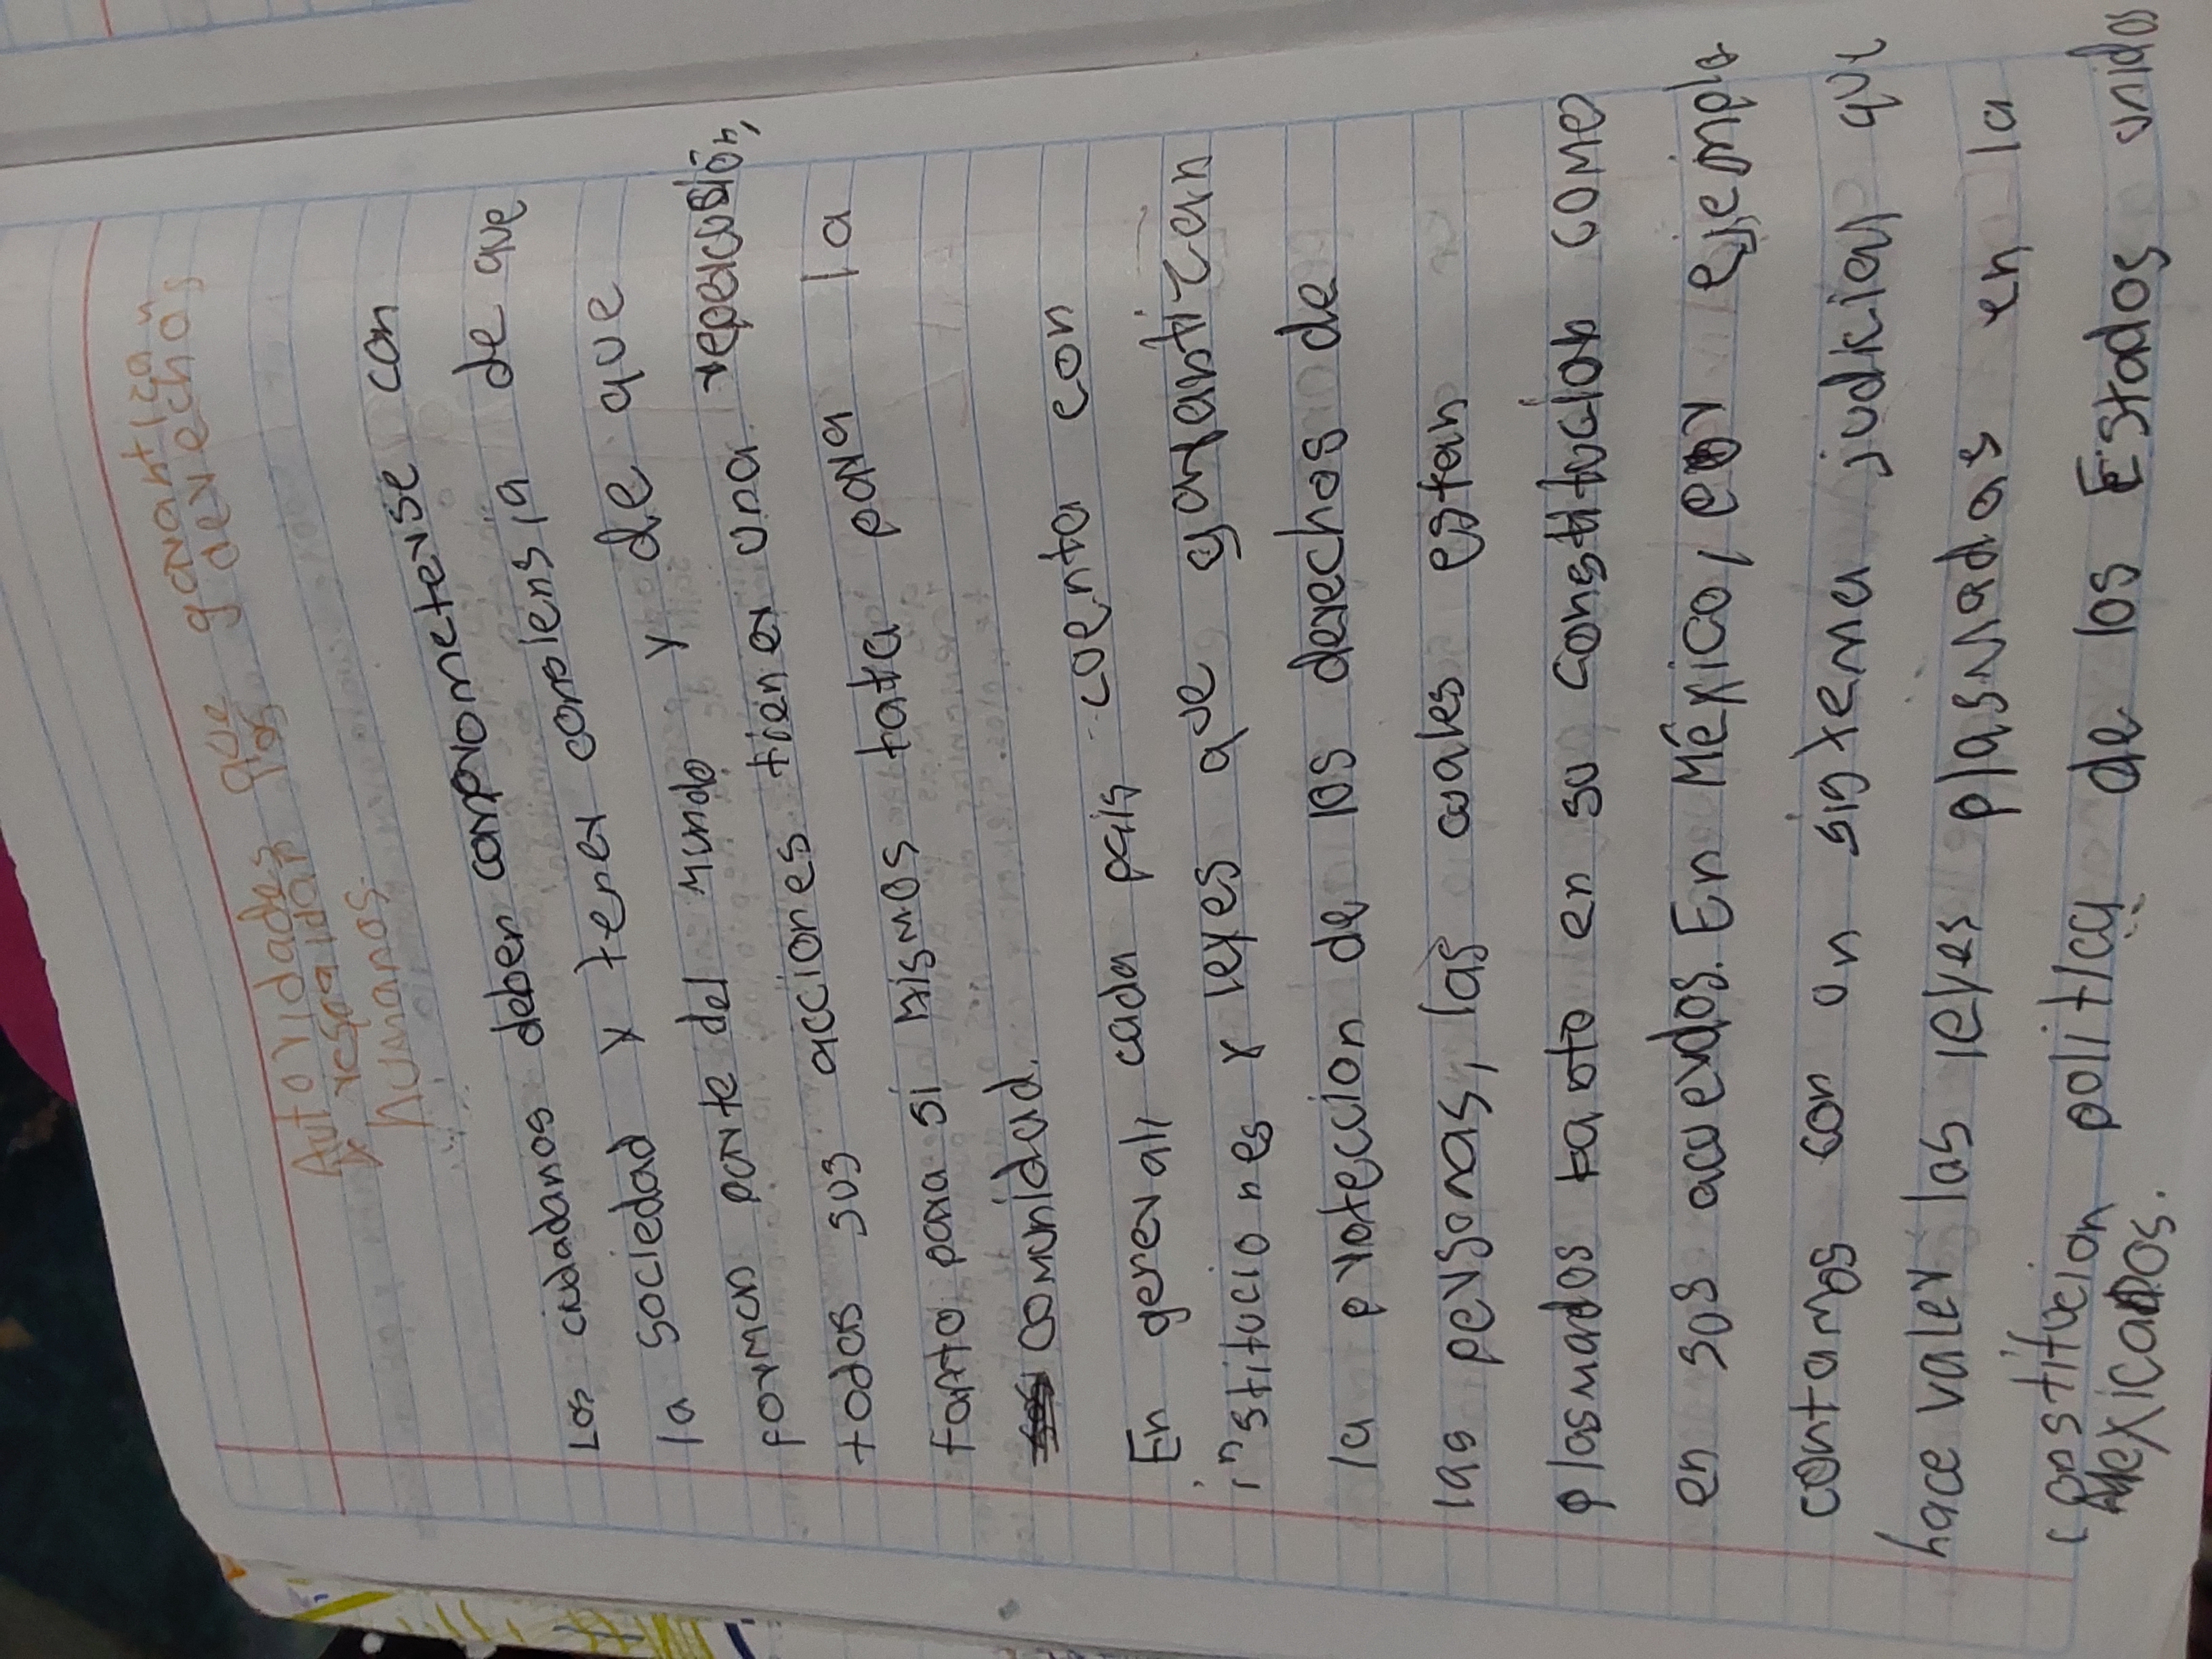 Autoridades que garantiza
y respaldan los derechos
Humanos.
Los ciudadanos deben comprometerse con
la sociedad y tener complensia de que
forman parte del mundo y de que
todas sus acciones tienen una repercusión,
tanto para si mismos tata para la
comunidad.
En general cada pais cuenta con
instituciones y leyes que garantizan
la proteccion de los derechos de
las personas, las cuales estan
plasmados tanto en su constitucion come
en sus acuerdos. En México, por ejemplo
contamos con un sistema judicial que
hace valer las leyes plasmadas en la
constitucion politica de los Estados unidos
Mexicanos.